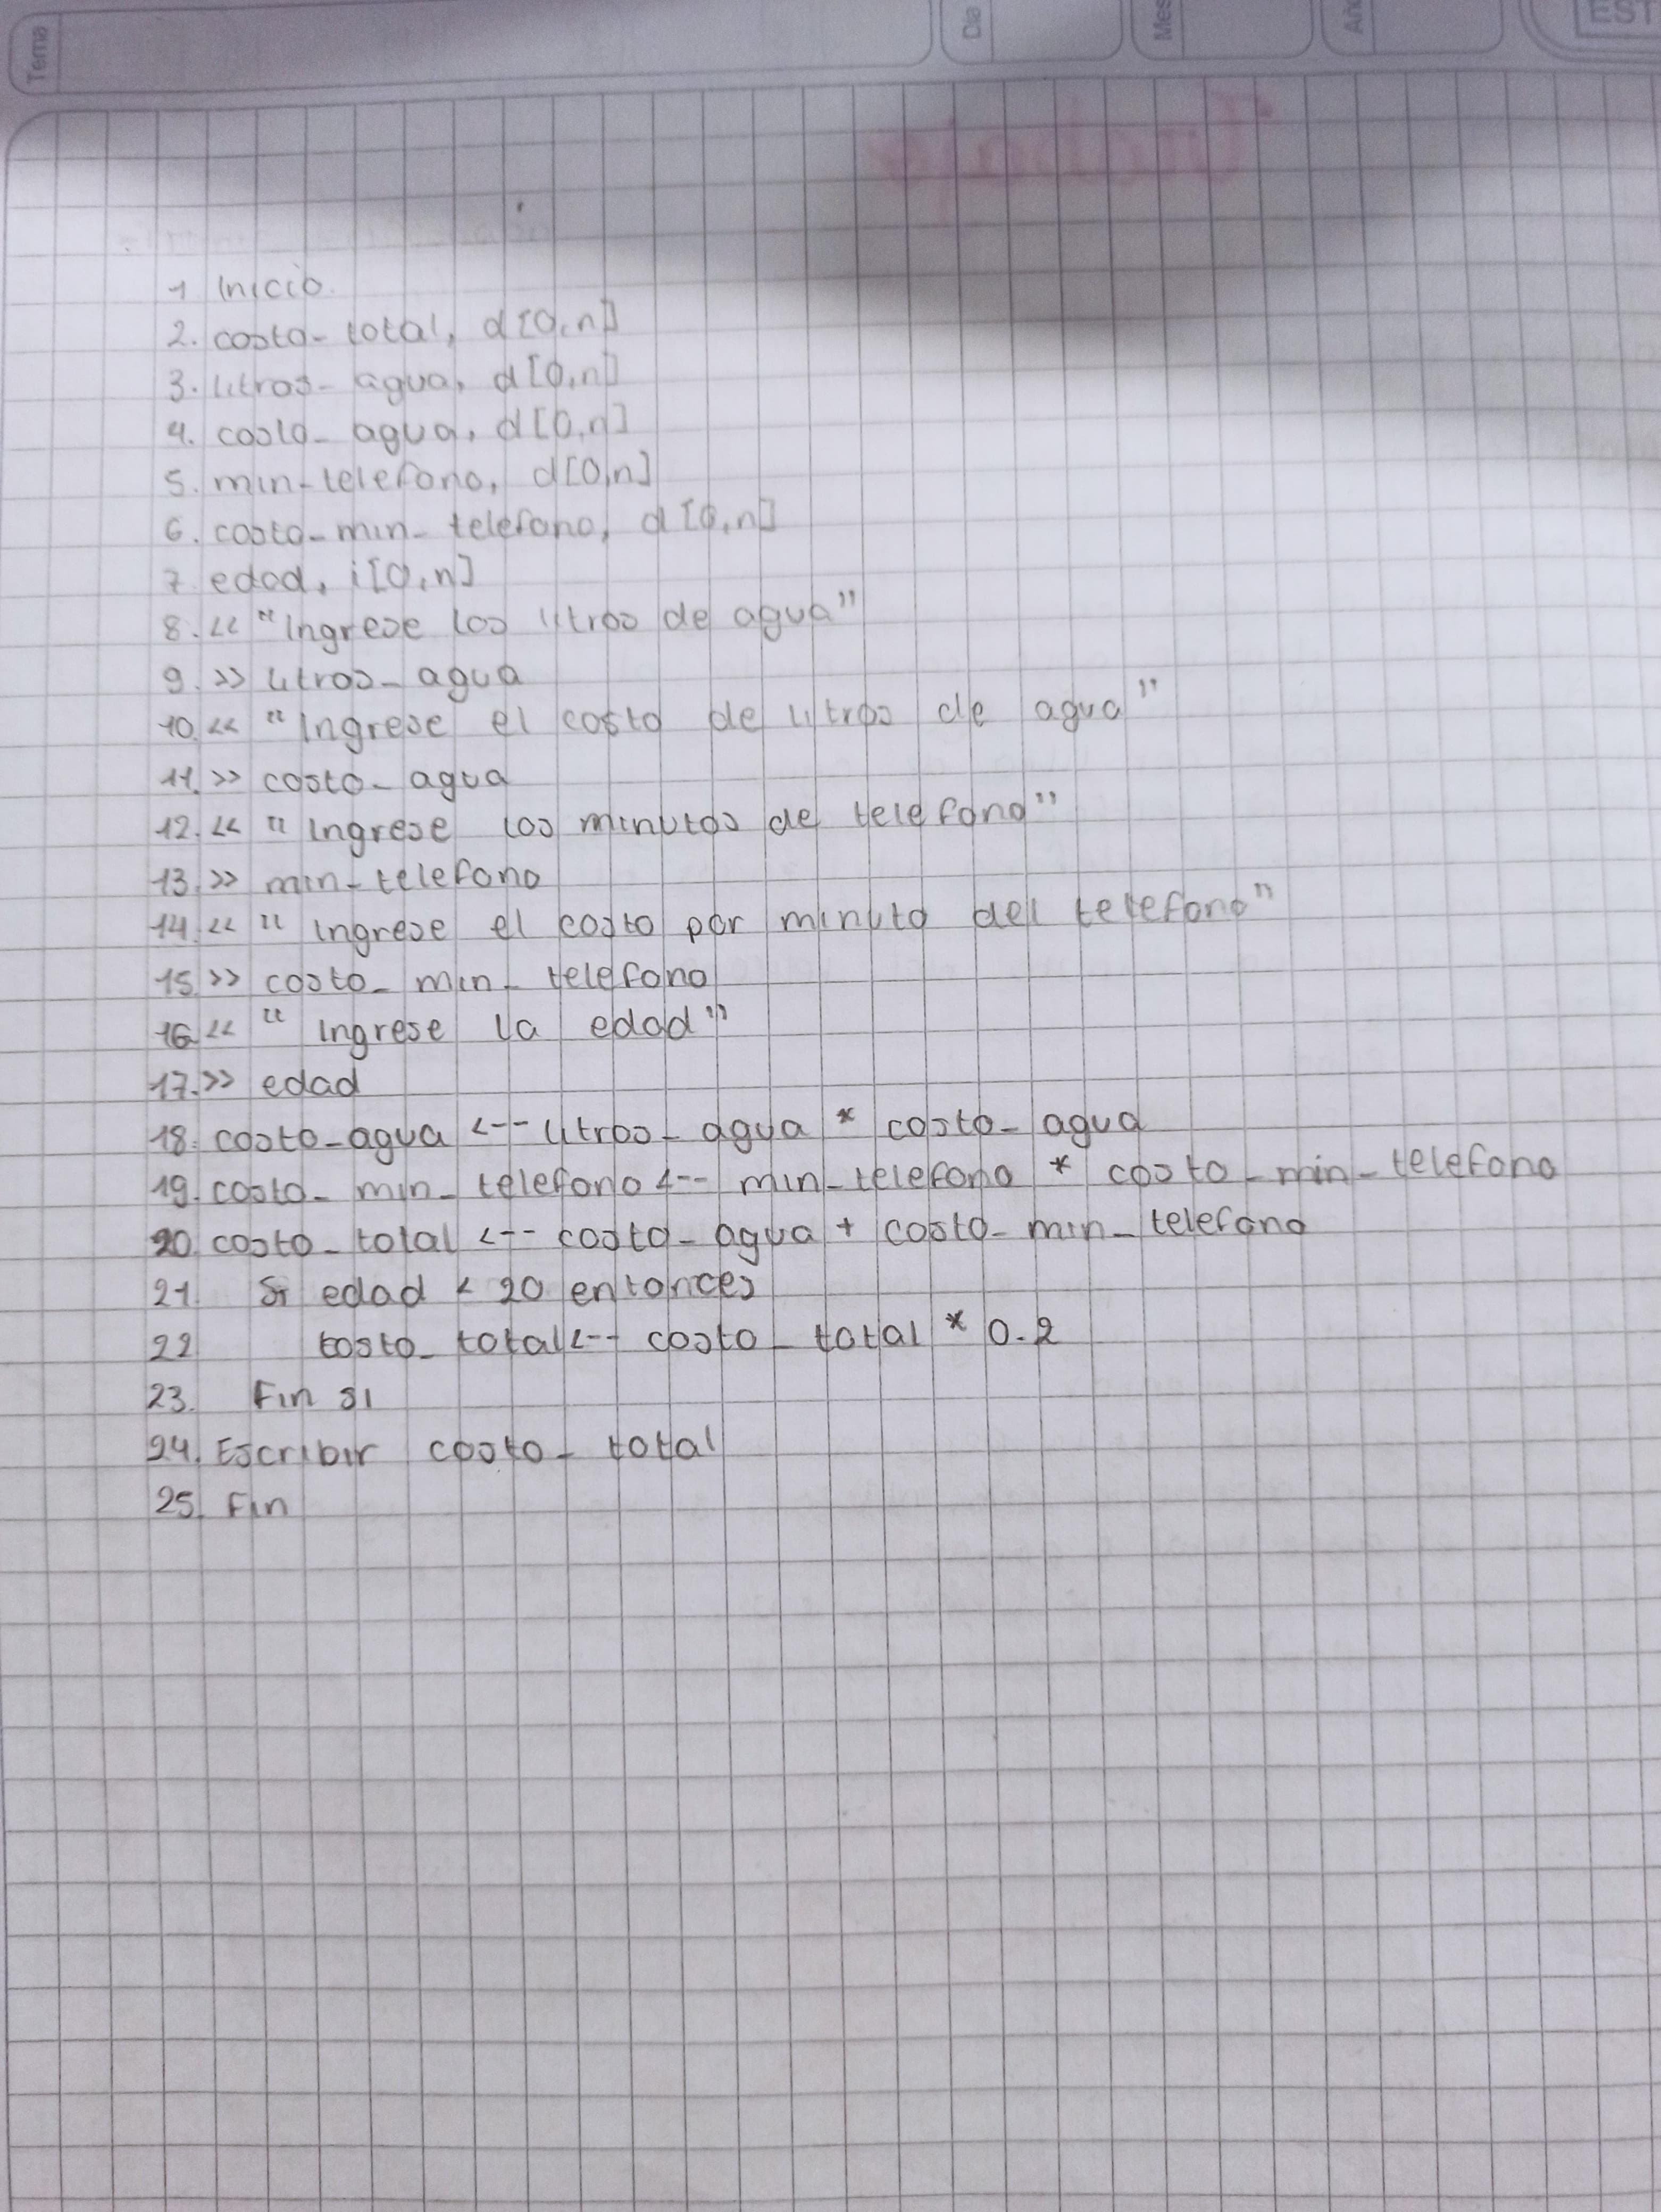 Tema
Dia
Mes
Año
EST
Trabajo
1 Inicio.
2. costo-total, d[0,n]
3. litros-agua, d[0,n]
4. costo-agua, d[0,n]
5. min-telefono, d[0,n]
6. costo-min-telefono, d[0,n]
7. edad, i[0,n]
8. << "Ingrese los litros de agua"
9. >> litros-agua
10. << "Ingrese el costo de litros de agua"
11. >> costo-agua
12. << "Ingrese los minutos de telefono"
13. >> min-telefono
14. << "Ingrese el costo por minuto del telefono"
15. >> costo-min-telefono
16. << "Ingrese la edad"
17. >> edad
18. costo-agua <-- litros-agua * costo-agua
19. costo-min-telefono <-- min-telefono * costo-min-telefono
20. costo-total <-- costo-agua + costo-min-telefono
21. Si edad < 20 entonces
22 costo-total <-- costo-total * 0.2
23. Fin si
24. Escribir costo-total
25. Fin